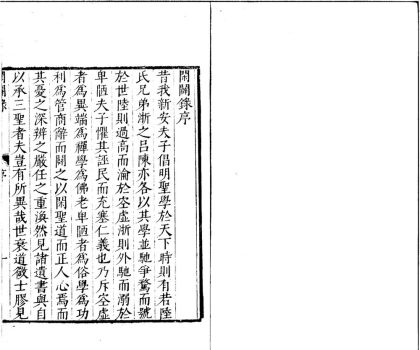 閑闢錄序
昔我新安夫子倡明聖學於天下時則有若陸
氏兄弟浙之呂陳亦各以其學並馳爭騖而號
於世陸則過高而淪於空虛浙則外馳而溺於
卑陋夫子懼其誣民而充塞仁義也乃斥空虛
者為異端為禪學為佛老卑陋者為俗學為功
利為管商辭而闢之以閑聖道而正人心焉而
其憂之深辨之嚴任之重渙然見諸遺書與自
以承三聖者夫豈有所異哉世衰道微士膠見
閑闢錄
序
一